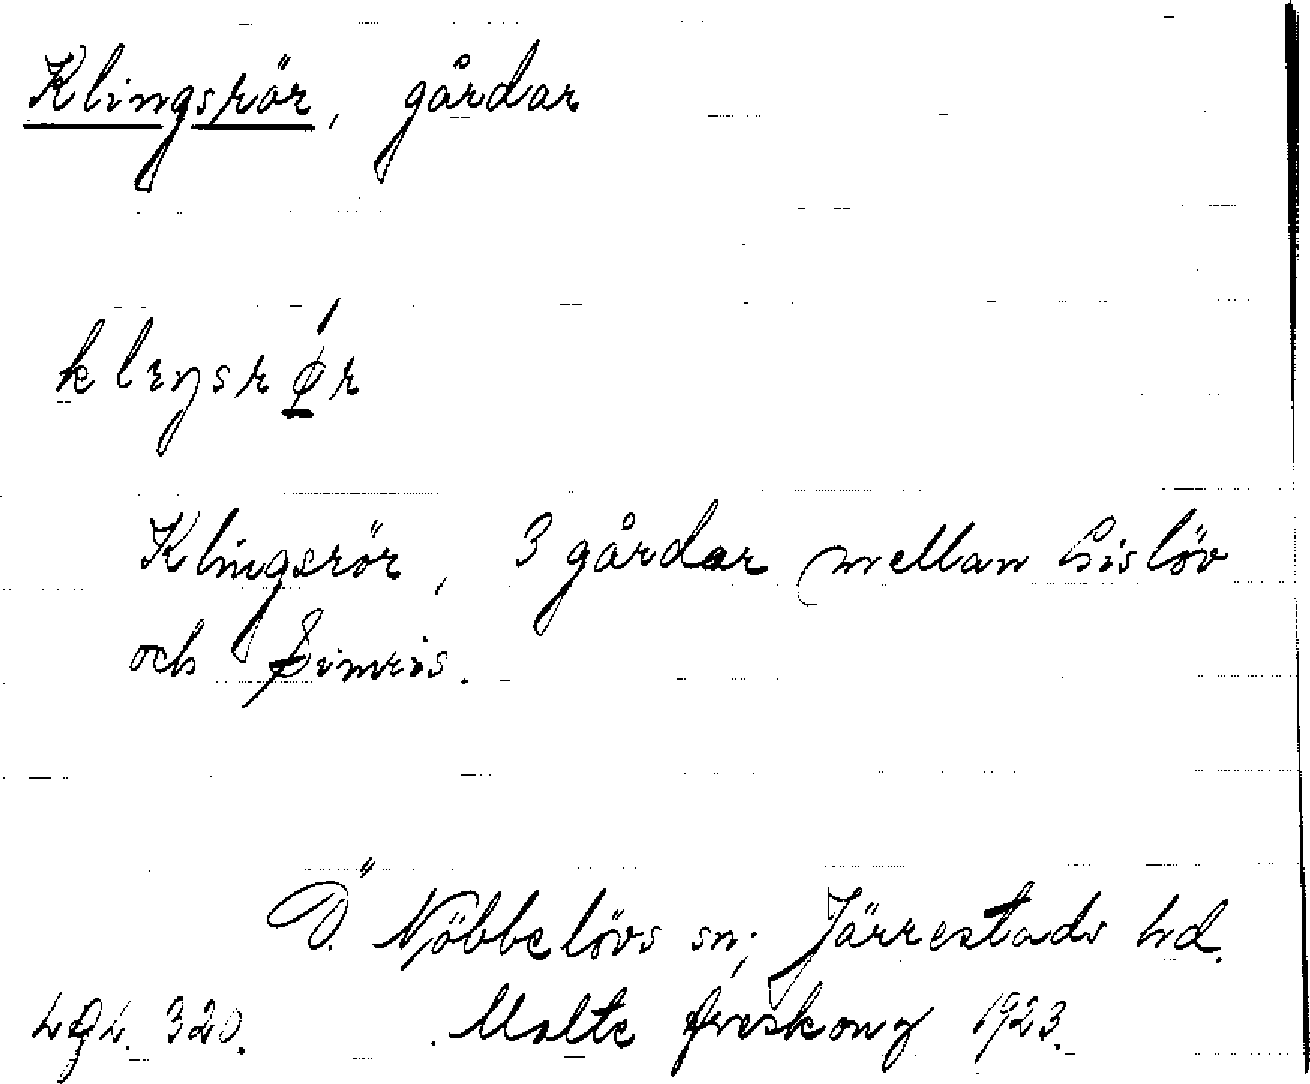 Klingsrör, gårdar
klıŋsrǿr
Klingsrör, 3 gårdar mellan Gislöv
och Simris.
Ö. Nöbbelövs sn; Järrestads hd.
LGL. 320. Malte Areskoug 1923.